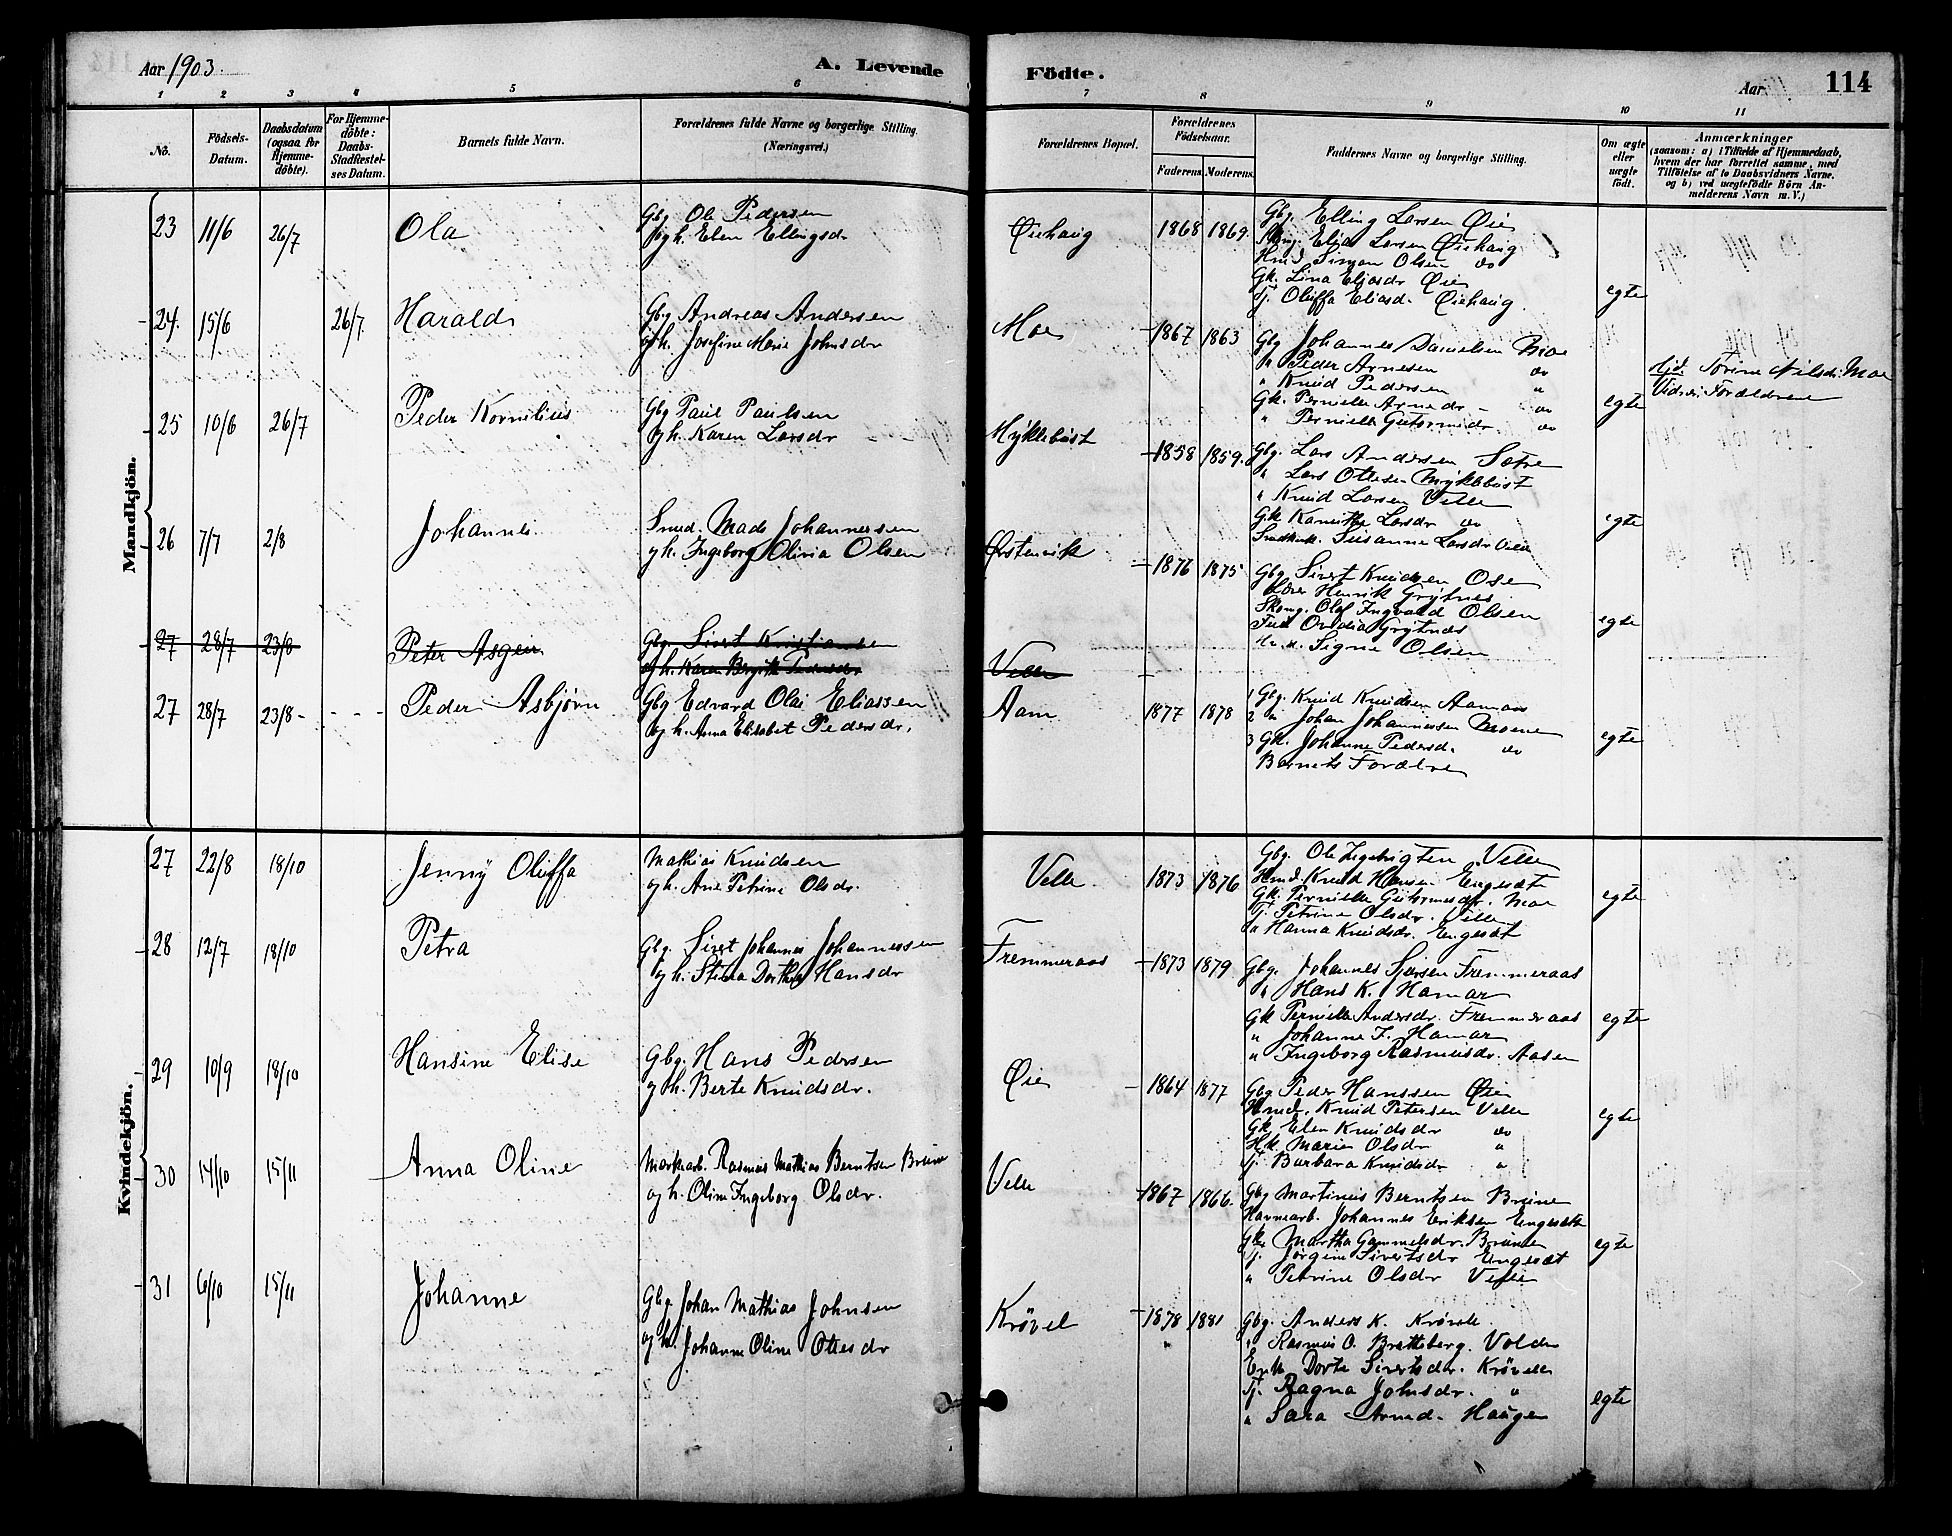 Aar 1903.
A. Levende
Födte.
Aar
114
1 2 3 4 5 6 7 8 9 10 11
No.
Födsels-
Datum.
Daabsdatum
(ogsaa for
Hjemme-
döbte).
For Hjemme-
döbte:
Daabs-
Stadfæstel-
ses Datum.
Barnets fulde Navn.
Forældrenes fulde Navne og borgerlige Stilling.
(Næringsvei.)
Forældrenes Bopæl.
Forældrenes
Födselsaar.
Faderens Moderens.
Faddernes Navne og borgerlige Stilling.
Om ægte
eller
uægte
födt.
Anmærkninger
(saasom: a) i Tilfælde af Hjemmedaab,
hvem der har forrettet samme, med
Tilföielse af to Daabsvidners Navne.
og b) ved uægtefödte Börn An-
melderens Navn m. V.)
Mandkjön.
23 11/6 26/7 Ola
Gbg Ole Pedersen
og h. Elen Ellingsdr
Øiehaug 1868 1869.
Gbg. Elling Larsen Øie
Elias Larsen Øiehaug
Simon Olsen do
Gk. Lina Eliasdr Øie
Tj. Oluffa Eliasd. Øiehaug
egte
24. 15/6 26/7. Harald
Gbg Andreas Andersen
og h. Josefine Marie Johnsdr
Moe 1867 1863
Gbg Johannes Danielsen Moe
" Peder Arnesen do
" Knud Pedersen "
Gk. Pernille Arnedr do
" Pernille Guttormsdr do
egte
Hjd. Torine Nilsdr. Moe
Vidner: Forældrene
25 10/6 26/7 Peder Kornelius
Gbg Paul Paulsen
og h. Karen Larsdr
Myklebust 1858 1859.
Gbg. Lars Andersen Sætre
" Lars Ottesen Myklebust
" Knud Larsen Velle
Gk Larsdr do
Susanne Larsdr Velle
egte
26 7/7 2/8 Johannes.
Smed. Mads Johannessen
og h. Ingeborg Olivia Olsen
Ørstenvik 1876 1875
Gbg Sivert Knudsen Ose
Lærer Henrik Grytnes
Skomg. Olaf Ingvald Olsen
Ovidia Grytnes
Signe Olsen
egte
27 28/7 23/8 Peter Asgeir
Gbg. Sivert Kristiansen
og h. Karen Bergitte Pedersdr
Velle
27 28/7 23/8 - - - - Peder Asbjørn
Gbg Edvard Olai Eliassen
og h. Anna Elisabet Pedersdr.
Aam 1877 1878
1 Gbg. Knud Knudsen Aamaas
2 do Johan Johannessen Moene
3 Gk. Johanne Pedersd. do
Barnets Forældre
egte
Kvindekjön.
27 22/8 18/10 Jenny Oluffa
Mathias Knudsen
og h. Ane Petrine Olsdr.
Velle. 1873 1876
Gbg. Ole Ingebrigtsen Velle
Hmd. Knud Hansen Engesæt
Gk. Pernille Guttormsdr. Moe
Tj. Petrine Olsdr. Velle
" Hanna Knudsdr. Engesæt
egte
28 12/7 18/10 Petra
Gbg. Sivert Johannes Johannessen
og h. Stina Dorthea Hansdr
Fremmeraas 1873 1879
Gbg. Johannes Sjursen Fremmeraas
" Hans K. Hamar
Gk Pernille Andersdr. Fremmeraas
" Johanne J. Hamar
" Ingeborg Rasmusdr. Aasen
egte
29 10/9 18/10 Hansine Elise
Gbg. Hans Pedersen
og h. Berte Knudsdr.
Øie 1864 1877
Gbg Peder Hanssen Øie
Hmd. Knud Petersen Velle
Gk Elen Knudsdr do
Hk. Marie Olsdr "
Tj. Barbara Knudsdr "
egte
30 14/10 15/11 Anna Oline
Markarb. Rasmus Mathias Berntsen Brune
og h. Oline Ingeborg Olsdr.
Velle 1867 1866.
Gbg Martinus Berntsen Brune
Havnearb. Johannes Eriksen Engesæt
Gk. Martha Gammelsdr. Brune
Tj. Jørgine Sivertsdr Engesæt
" Petrine Olsdr Velle
egte
31 6/10 15/11 Johanne
Gbg. Johan Mathias Johnsen
og h. Johanne Oline Ottesdr
Krøvel 1878 1881
Gbg. Anders K. Krøvel.
" Rasmus O. Bratteberg. Volden
Enk. Dorte Sivertsdr. Krøvelle
Tj. Ragna Johnsdr. "
" Sara Arned. Haugen
egte